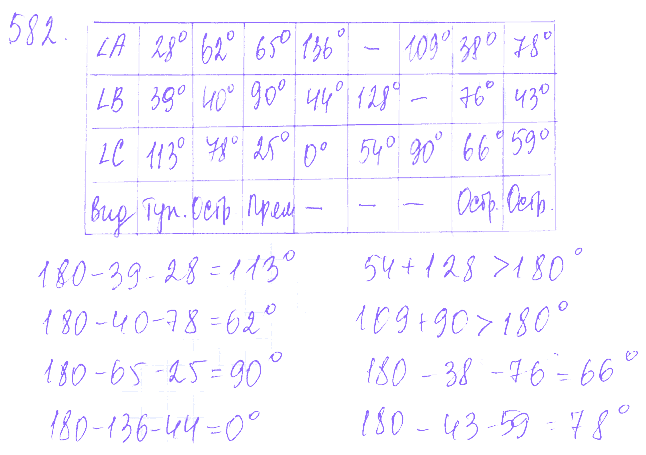 582.
∠A 28° 62° 65° 136° – 109° 38° 78°
∠B 39° 40° 90° 44° 128° – 76° 43°
∠C 113° 78° 25° 0° 54° 90° 66° 59°
Вид Туп. Остр Прям – – – Остр. Остр.
180-39-28=113°
180-40-78=62°
180-65-25=90°
180-136-44=0°
54+128>180°
109+90>180°
180-38-76=66°
180-43-59=78°